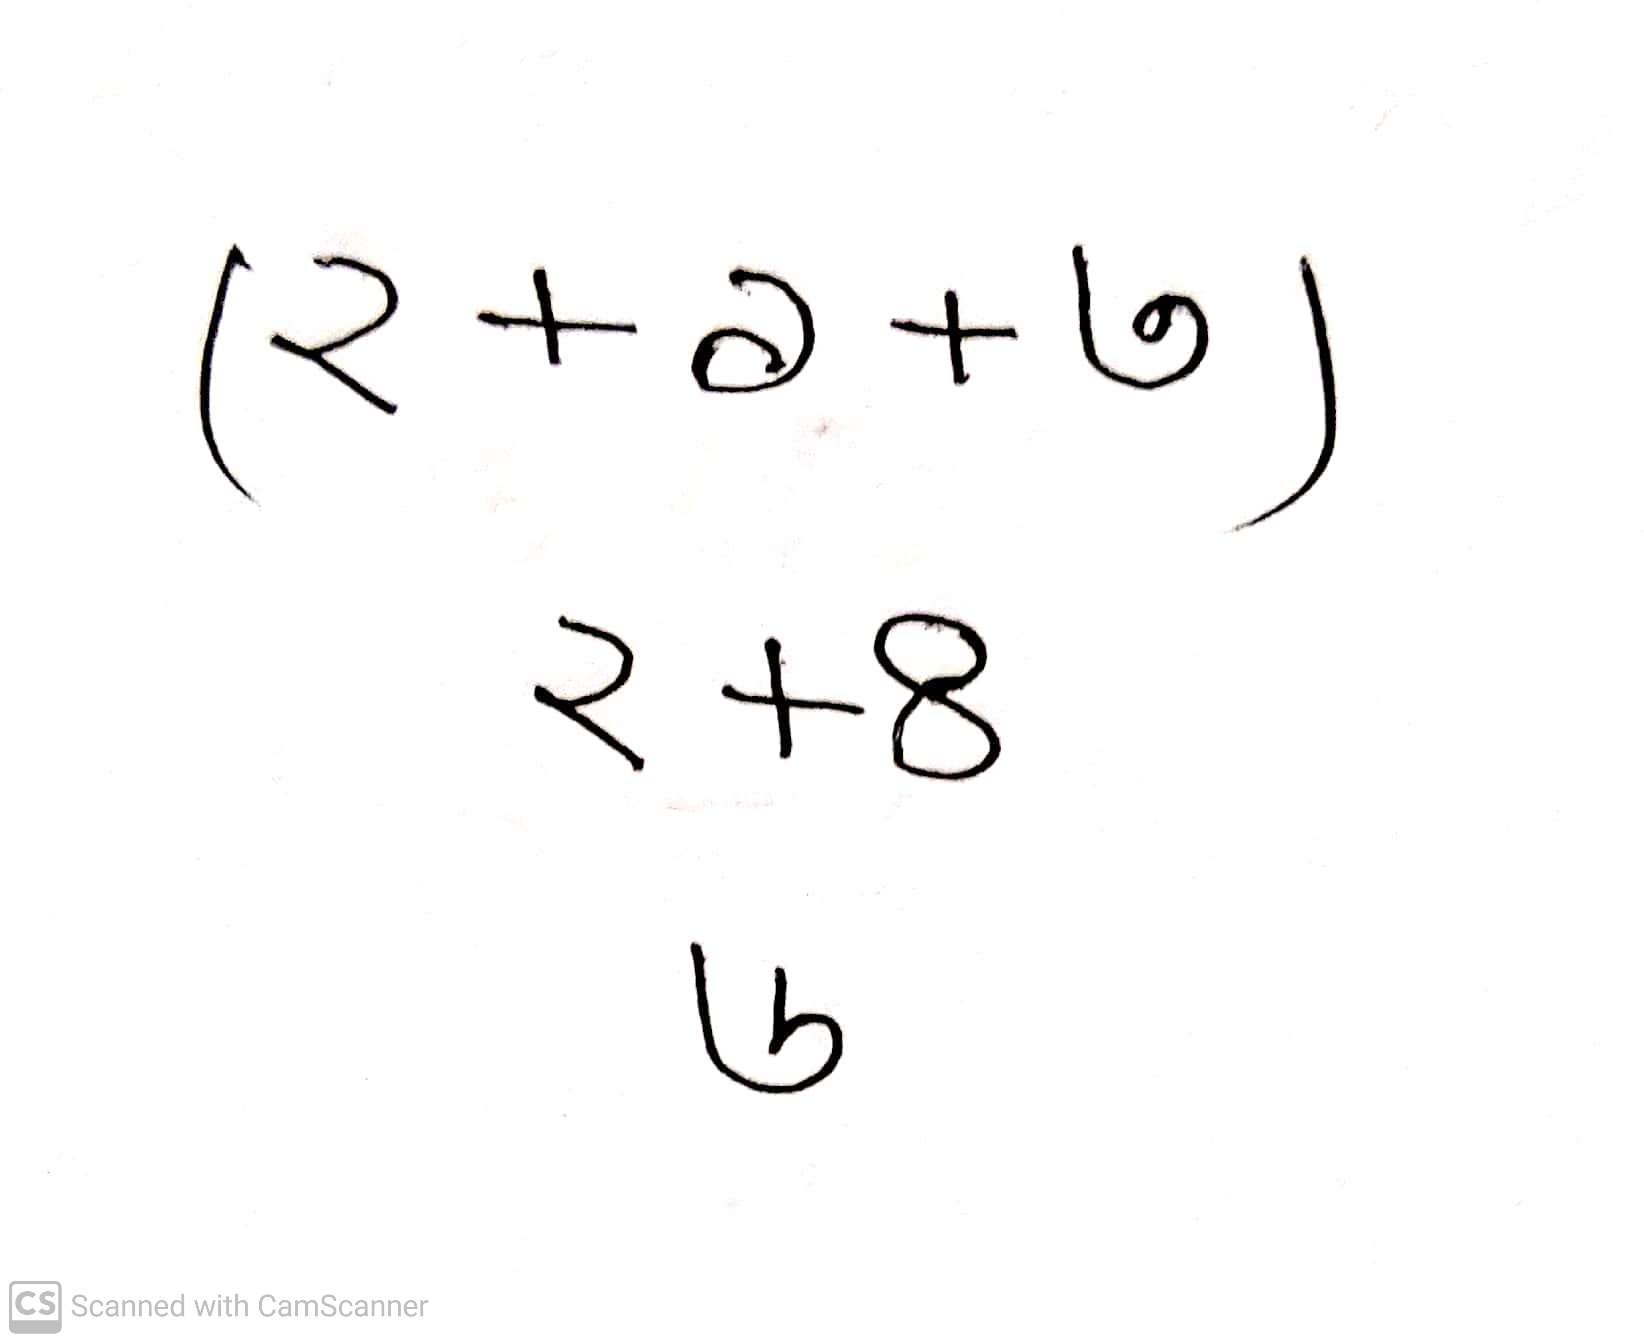 (২+১+৩)
২+৪
৬
CS Scanned with CamScanner